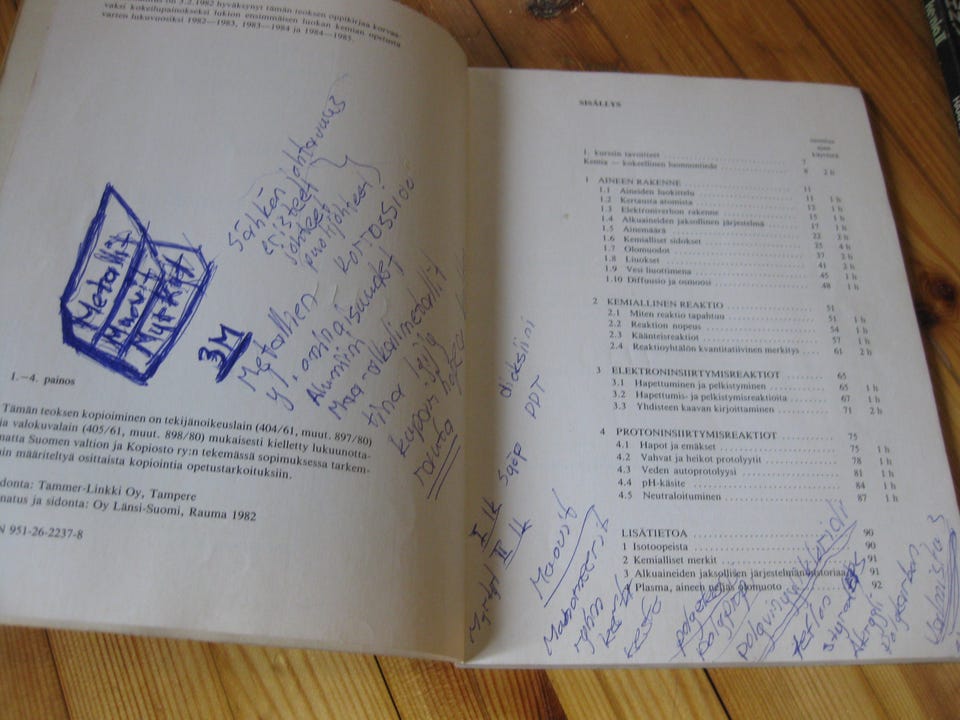 on 3.2.1982 hyväksynyt tämän teoksen oppikirjaa korvaa-
vaksi kokeilupainokseksi lukion ensimmäisen luokan kemian opetusta
varten lukuvuosiksi 1982—1983, 1983—1984 ja 1984—1985.
Sähkönjohtavuus
eristeet
johteet
puolijohteet
Metallit
Muovit
Nyt Kit
3M
Metallien korroosio
yl. ominaisuudet
Alumiini
Maa-alkalimetallit
tina lyijy
kupari
rauta
1.—4. painos
Tämän teoksen kopioiminen on tekijänoikeuslain (404/61, muut. 897/80)
ja valokuvalain (405/61, muut. 898/80) mukaisesti kielletty lukuunotta-
matta Suomen valtion ja Kopiosto ry:n tekemässä sopimuksessa tarkem-
min määriteltyä osittaista kopiointia opetustarkoituksiin.
Ladonta: Tammer-Linkki Oy, Tampere
Painatus ja sidonta: Oy Länsi-Suomi, Rauma 1982
ISBN 951-26-2237-8
SISÄLLYS
1. kurssin tavoitteet 7
Kemia — kokeellinen luonnontiede 8 2 h
1 AINEEN RAKENNE 11
1.1 Aineiden luokittelu 11 1 h
1.2 Kertausta atomista 12 1 h
1.3 Elektroniverhon rakenne 15 1 h
1.4 Alkuaineiden jaksollinen järjestelmä 17 1 h
1.5 Ainemäärä 22 2 h
1.6 Kemialliset sidokset 25 4 h
1.7 Olomuodot 37 2 h
1.8 Liuokset 41 2 h
1.9 Vesi liuottimena 45 1 h
1.10 Diffuusio ja osmoosi 48 1 h
2 KEMIALLINEN REAKTIO 51
2.1 Miten reaktio tapahtuu 51 1 h
2.2 Reaktion nopeus 54 1 h
2.3 Käänteisreaktiot 57 1 h
2.4 Reaktioyhtälön kvantitatiivinen merkitys 61 2 h
3 ELEKTRONINSIIRTYMISREAKTIOT 65
3.1 Hapettuminen ja pelkistyminen 65 1 h
3.2 Hapettumis- ja pelkistymisreaktioita 67 1 h
3.3 Yhdisteen kaavan kirjoittaminen 71 2 h
4 PROTONINSIIRTYMISREAKTIOT 75
4.1 Hapot ja emäkset 75 1 h
4.2 Vahvat ja heikot protolyytit 78 1 h
4.3 Veden autoprotolyysi 81 1 h
4.4 pH-käsite 84 1 h
4.5 Neutraloituminen 87 1 h
LISÄTIETOA 90
1 Isotoopeista 90
2 Kemialliset merkit 91
3 Alkuaineiden jaksollisen järjestelmän historiaa 91
4 Plasma, aineen neljäs olomuoto 92
DDT
I lk
II lk
Muovit
polyvinyylikloridi
teflon